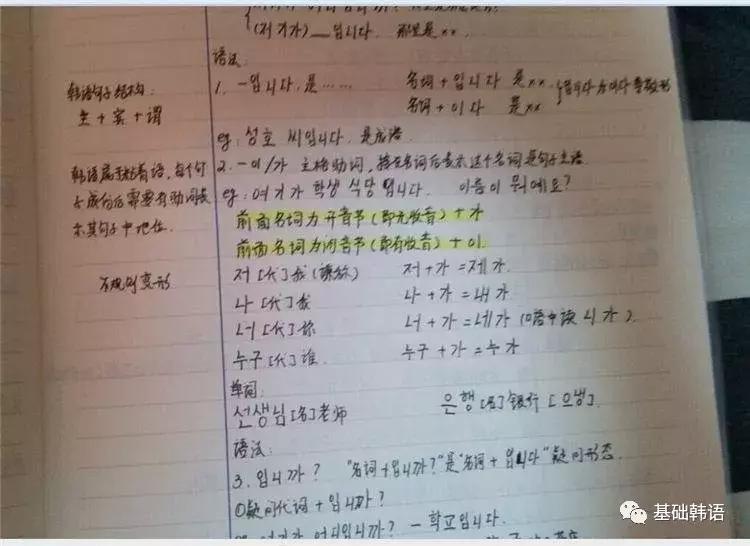 (저기가)__입니다. 那里是××.
语法:
韩语句子结构:
主+宾+谓
1. -입니다. 是……
名词+입니다 是××.
名词+이다 是××
eg: 성호 씨입니다. 是成浩.
韩语属于粘着语,每个句
子成份后需要有助词表
示其句子中地位.
2. -이/가 主格助词, 接在名词后表示这个名词是句子主语.
eg: 여기가 학생 식당입니다. 이름이 뭐예요?
前面名词为开音节(即无收音)+가
前面名词为闭音节(即有收音)+이.
不规则变形
저 [代]我(谦称) 저+가=제가.
나 [代]我 나+가=내가
너 [代]你 너+가=네가 (口语中读 니가).
누구 [代]谁. 누구+가=누가
单词:
선생님 [名]老师 은행 [名]银行 [으냉].
语法:
3. 입니까? "名词+입니까?"是"名词+입니다"疑问形态.
①疑问代词+입니까?
여기가 어디입니까? - 학교입니다.
基础韩语